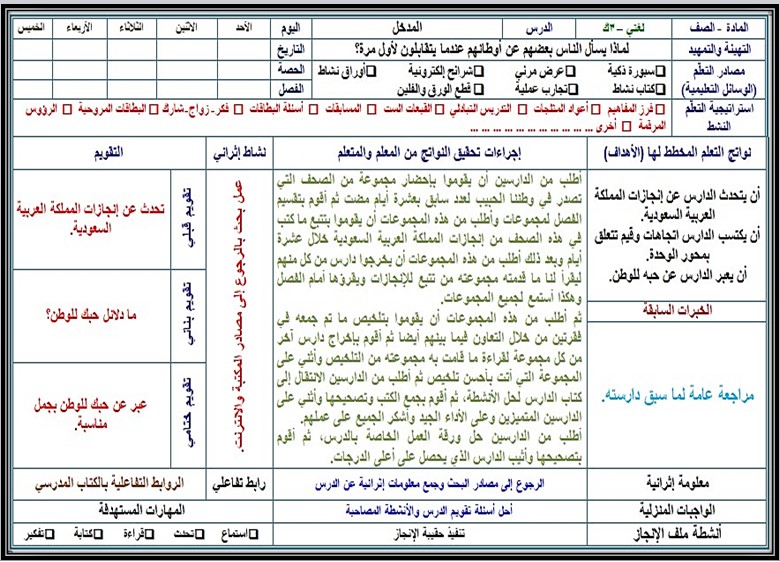 المادة - الصف لغتي – ٣ك الدرس المدخل اليوم الأحد الاثنين الثلاثاء الأربعاء الخميس
التهيئة والتمهيد لماذا يسأل الناس بعضهم عن أوطانهم عندما يتقابلون لأول مرة؟ التاريخ
مصادر التعلم ❑سبورة ذكية ❑عرض مرئي ❑شرائح إلكترونية ❑أوراق نشاط الحصة
(الوسائل التعليمية) ❑كتاب نشاط ❑تجارب عملية ❑ قطع الورق والفلين الفصل
استراتيجية التعلم □ فرز المفاهيم □ أعواد المثلجات □ التدريس التبادلي □ القبعات الست □ المسابقات □ أسئلة البطاقات □ فكر- زواج-شارك □ البطاقات المروحية □ الرؤوس
النشط المرقمة □ أخرى ... ... ... ... ... ... ... ... ... ...
نواتج التعلم المخطط لها (الأهداف) إجراءات تحقيق النواتج من المعلم والمتعلم نشاط إثرائي التقويم
أن يتحدث الدارس عن إنجازات المملكة
العربية السعودية.
أن يكتسب الدارس اتجاهات وقيم تتعلق
بمحور الوحدة.
أن يعبر الدارس عن حبه للوطن.
الخبرات السابقة
مراجعة عامة لما سبق دارسته.
أطلب من الدارسين أن يقوموا بإحضار مجموعة من الصحف التي
تصدر في وطننا الحبيب لعدد سابق بعشرة أيام مضت ثم أقوم بتقسيم
الفصل لمجموعات وأطلب من هذه المجموعات أن يقوموا بتتبع ما كتب
في هذه الصحف من إنجازات المملكة العربية السعودية خلال عشرة
أيام وبعد ذلك أطلب من هذه المجموعات أن يخرجوا دارس من كل منهم
ليقرأ لنا ما قدمته مجموعته من تتبع للإنجازات ويقرؤها أمام الفصل
وهكذا أستمع لجميع المجموعات.
ثم أطلب من هذه المجموعات أن يقوموا بتلخيص ما تم جمعه في
فقرتين من خلال التعاون فيما بينهم أيضا ثم أقوم بإخراج دارس آخر
من كل مجموعة لقراءة ما قامت به مجموعته من التلخيص وأثني على
المجموعة التي أتت بأحسن تلخيص ثم أطلب من الدارسين الانتقال إلى
كتاب الدارس لحل الأنشطة، ثم أقوم بجمع الكتب وتصحيحها وأثني على
الدارسين المتميزين وعلى الأداء الجيد وأشكر الجميع على عملهم.
أطلب من الدارسين حل ورقة العمل الخاصة بالدرس، ثم أقوم
بتصحيحها وأثيب الدارس الذي يحصل على أعلى الدرجات.
عمل بحث بالرجوع إلى مصادر المكتبة والانترنت.
تقويم قبلي
تحدث عن إنجازات المملكة العربية
السعودية.
تقويم بنائي
ما دلائل حبك للوطن؟
تقويم ختامي
عبر عن حبك للوطن بجمل
مناسبة.
معلومة إثرائية الرجوع إلى مصادر البحث وجمع معلومات إثرائية عن الدرس رابط تفاعلي الروابط التفاعلية بالكتاب المدرسي
الواجبات المنزلية أحل أسئلة تقويم الدرس والأنشطة المصاحبة المهارات المستهدفة
أنشطة ملف الإنجاز تنفيذ حقيبة الإنجاز ❑ استماع ❑ تحدث ❑ قراءة ❑ كتابة ❑ تفكير